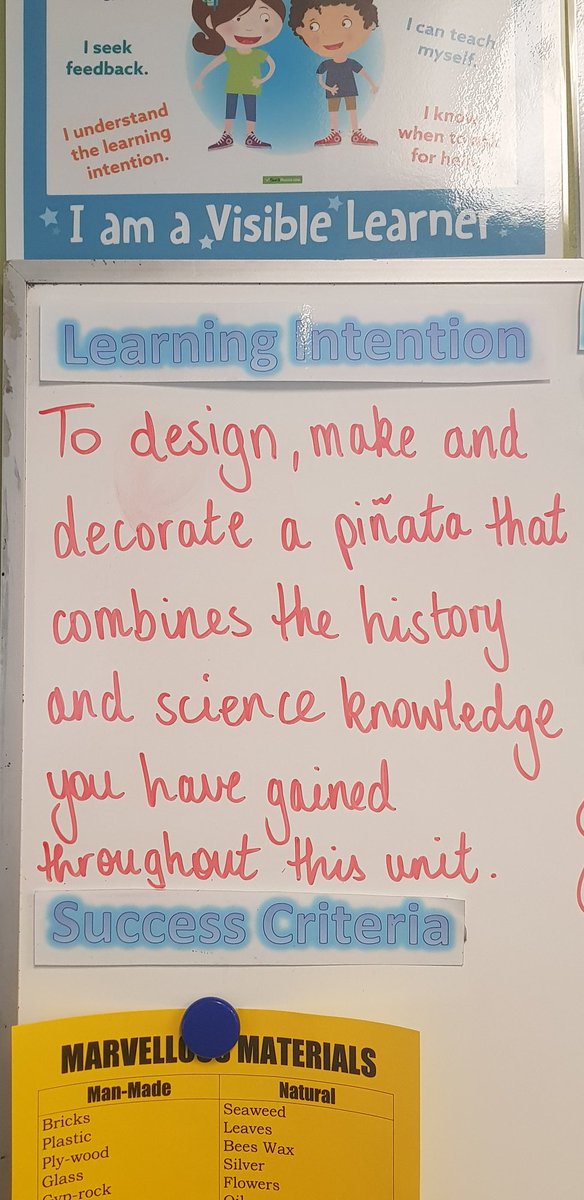 I seek
feedback.
I can teach
myself.
I understand
the learning
intention.
I know
when to ask
for help.
I am a Visible Learner
Learning Intention
To design, make and
decorate a piñata that
combines the history
and science knowledge
you have gained
throughout this unit.
Success Criteria
MARVELLOUS MATERIALS
Man-Made
Natural
Bricks
Plastic
Ply-wood
Glass
Gyp-rock
Seaweed
Leaves
Bees Wax
Silver
Flowers